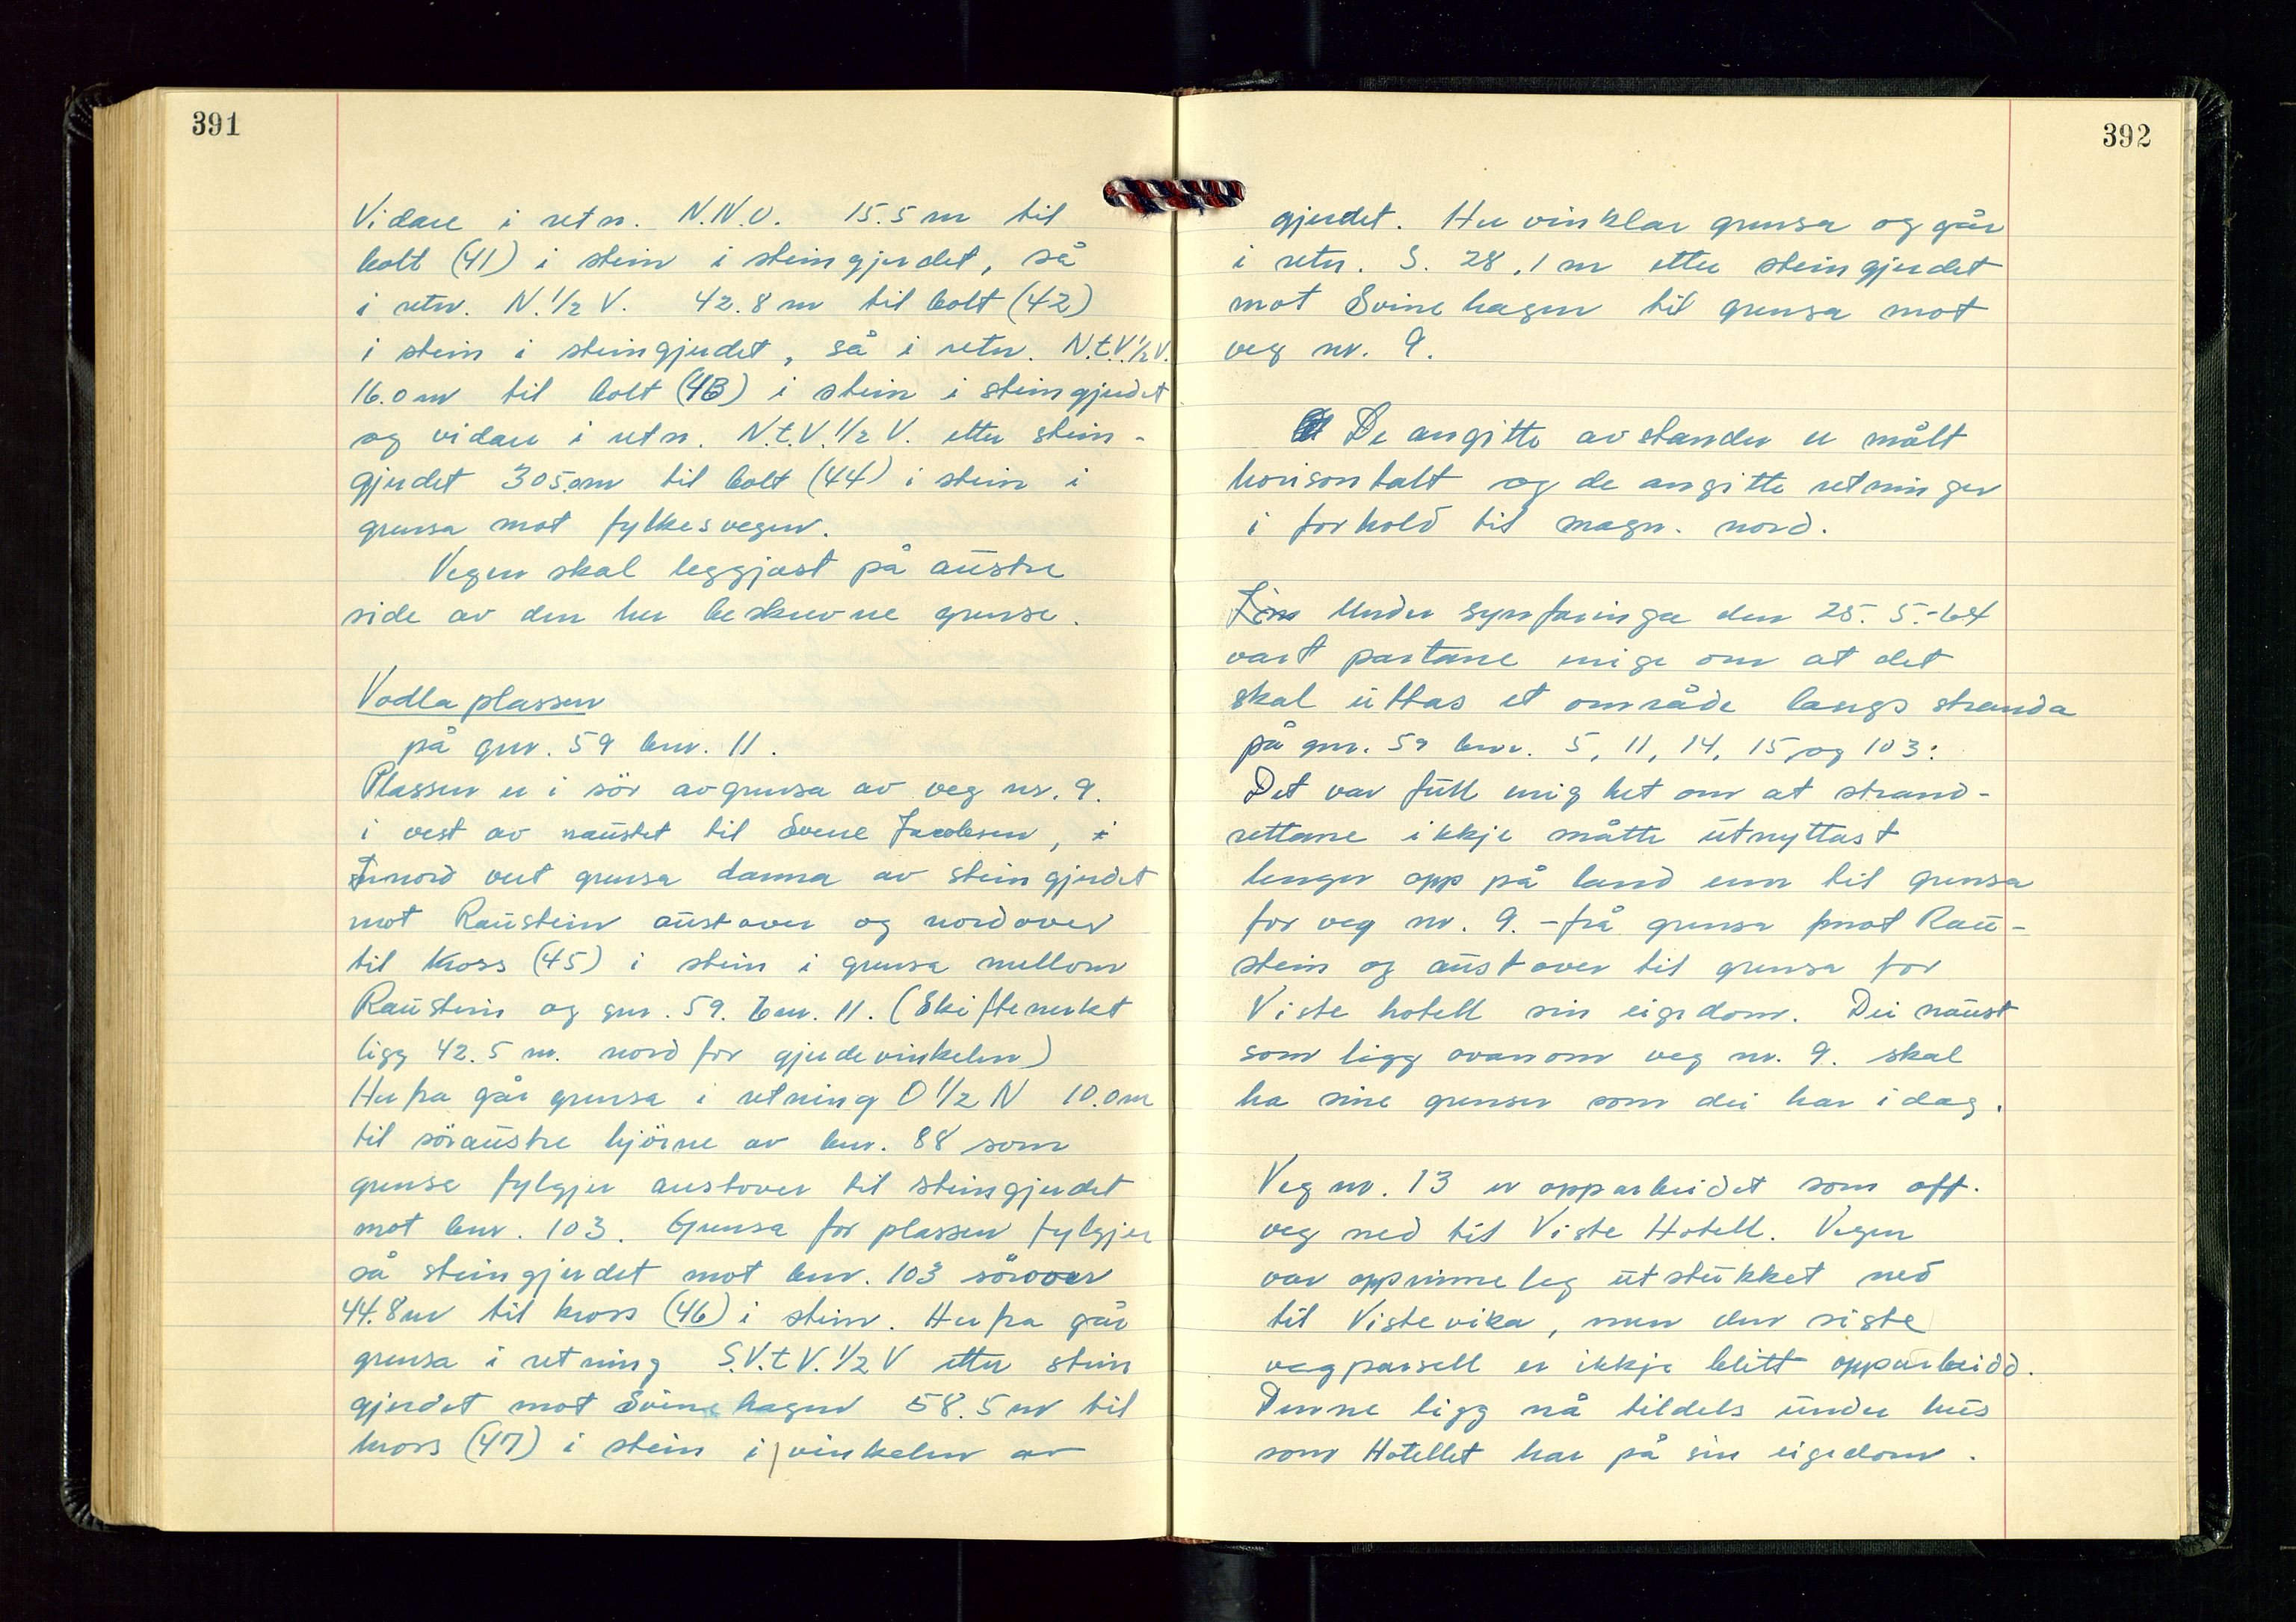 391
Vidare i retn. N.N.O. 15.5 m til
bolt (41) i stein i steingjerdet, så
i retn. N.1/2 V. 42.8 m til bolt (42)
i stein i steingjerdet, så i retn. N.t.V.1/2V.
16.0 m til bolt (43) i stein i steingjerdet
og vidare i retn. N.t.V.1/2 V. etter stein-
gjerdet 305.0m til bolt (44) i stein i
grensa mot fylkesvegen.
Vegen skal leggjast på austre
side av den her beskrevne grense.
Vodla plassen
på gnr. 59 bnr. 11.
Plassen er i sör avgrensa av veg nr. 9.
i vest av naustet til Svene Jacobsen, i
I nord vert grensa danna av steingjerdet
mot Raustein austover og nordover
til kross (45) i stein i grensa mellom
Raustein og gnr. 59. bnr. 11. (Skiftemerket
ligg 42.5 m. nord for gjerdevinkelen)
Herfra går grensa i retning O 1/2 N 10.0m
til söraustre hjörne av bnr. 88 som
grensa fylgjer austover til steingjerdet
mot bnr. 103. Grensa for plassen fylgjer
så steingjerdet mot bnr. 103 sörover
44.8m til kross (46) i stein. Herfra går
grensa i retning S.V.t V.1/2 V etter stein
gjerdet mot Svinehagen 58.5 m til
kross (47) i stein i vinkelen av
392
gjerdet. Her vinklar grensa og går
i retn. S. 28.1 m etter steingjerdet
mot Svinehagen til grensa mot
veg nr. 9.
De angitte avstander er målt
horisontalt og de angitte retninger
i forhold til magn. nord.
Under synfaringa den 25.5.-64
vart partane enige om at det
skal uttas et område langs stranda
på gnr. 59 bnr. 5, 11, 14, 15 og 103:
Det var full enighet om at strand-
rettane ikkje måtte utnyttast
lenger opp på land enn til grensa
for veg nr. 9. - frå grensa mot Rau-
stein og austover til grensa for
Viste hotell sin eigedom. Dei naust
som ligg ovanom veg nr. 9. skal
ha sine grenser som dei har idag.
Veg nr. 13 er opparbeidet som off.
veg ned til Viste Hotell. Vegen
var opprinneleg utstukket ned
til Vistevika, men den siste
vegparsell er ikkje blitt opparbeidd.
Denne ligg nå tildels under hus
som Hotellet har på sin eigedom.